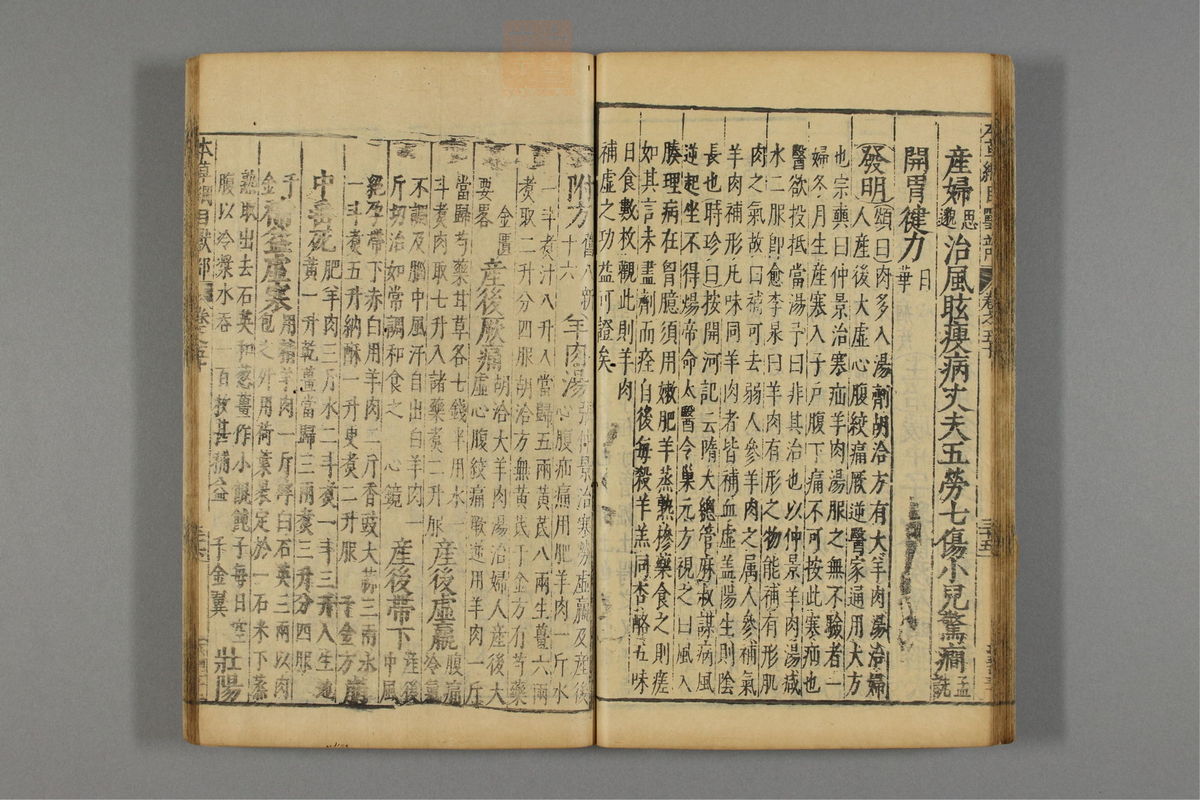 産婦思邈治風眩痩病丈夫五勞七傷小兒驚癎孟詵
開胃健力日華
發明頌曰肉多入湯劑胡洽方有大羊肉湯治婦
人産後大虛心腹絞痛厥逆醫家通用大方
也宗奭曰仲景治寒疝羊肉湯服之無不驗者一
婦冬月生産寒入子戸腹下痛不可按此寒疝也
醫欲投抵當湯予曰非其治也以仲景羊肉湯減
水二服卽愈李杲曰羊肉有形之物能補有形肌
肉之氣故曰補可去弱人參羊肉之属人參補氣
羊肉補形凡味同羊肉者皆補血虛盖陽生則陰
長也時珍曰按開河記云隋大總管麻叔謀病風
逆起坐不得煬帝命太醫令巢元方視之曰風入
腠理病在胷臆須用嫩肥羊蒸熟摻藥食之則瘥
如其言未盡劑而痊自後毎殺羊羔同杏酪五味
日食數枚觀此則羊肉
補虛之功益可證矣
附方舊八新十六
羊肉湯張仲景治寒勞虛羸及産後
心腹疝痛用肥羊肉一斤水
一斗煮汁八升入當歸五兩黃芪八兩生薑六兩
煮取二升分四服胡洽方無黃芪千金方有芍藥
金匱要畧
産後厥痛胡洽大羊肉湯治婦人産後大
虛心腹絞痛厥逆用羊肉一斤
當歸芍藥甘草各七錢半用水一
斗煮肉取七升入諸藥煮二升服
産後虛羸腹痛冷氣
不調及腦中風汗自出白羊肉一
斤切治如常調和食之 心鏡
産後帶下産後中風
絕孕帶下赤白用羊肉二斤香豉大蒜三兩水
一斗煮五升納酥一升更煮二升服 千金方
崩
中垂死肥羊肉三斤水二斗煮一斗三升入生地
黃一升乾薑當歸三兩煮三升分四服
千金
補益虛寒用精羊肉一斤碎白石英三兩以肉
包之外用荷葉裹定於一石米下蒸
熟取出去石英和葱薑作小餛飩子每日空
腹以冷漿水吞一百枚甚補益 千金翼
壯陽